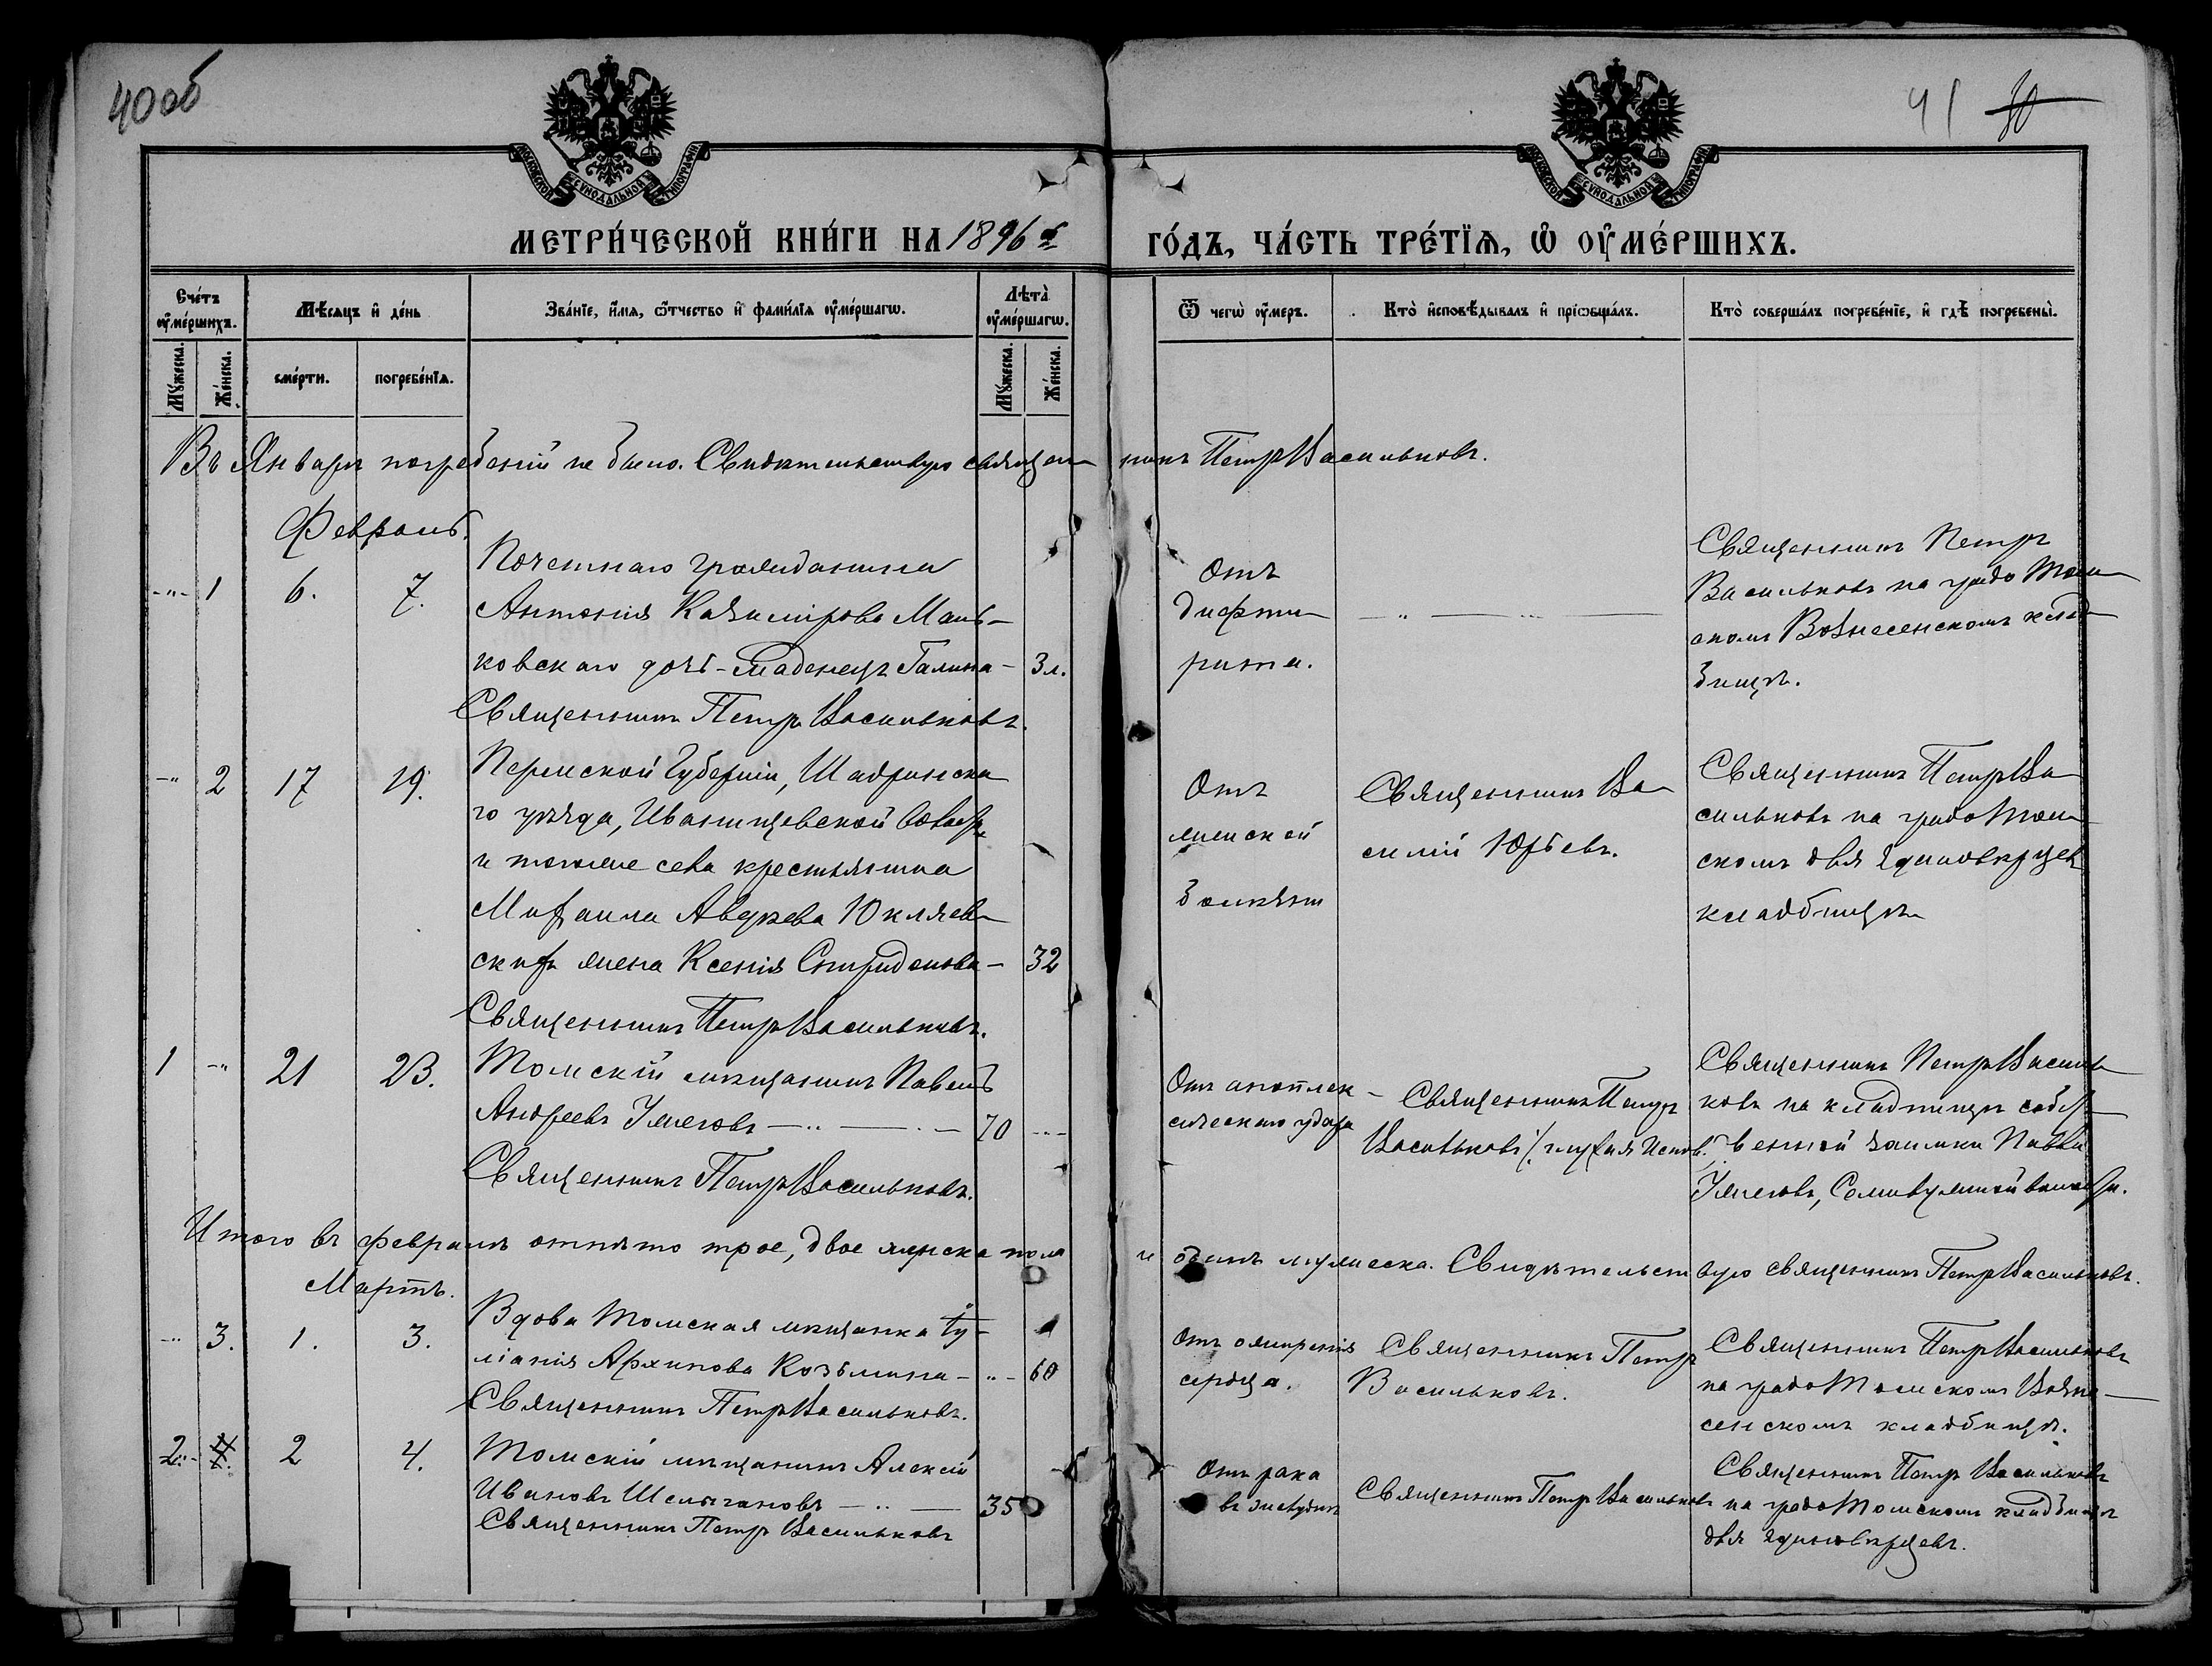 40об
41 30
МОСКОВСКОЙ СѴНОДАЛЬНОЙ ТИПОГРАФІИ
МОСКОВСКОЙ СѴНОДАЛЬНОЙ ТИПОГРАФІИ
МЕТРИ́ЧЕСКОЙ КНИ́ГИ НА 1896 й ГО́ДЪ, ЧА́СТЬ ТРЕ́ТЇѦ, Ѡ҆ ОУ҆МЕ́РШИХЪ.
Сче́тъ оу҆ме́ршихъ.
Мѣ́сяцъ и҆ де́нь
Зва́нїе, и҆́мѧ, ѻ҆́тчество и҆ фами́лїѧ оу҆ме́ршагѡ.
Лѣта̀ оу҆ме́ршагѡ.
Ѿ чегѡ̀ оу҆́меръ.
Кто̀ и҆сповѣ́дывалъ и҆ прїѡбща́лъ.
Кто̀ соверша́лъ погребе́нїе, и҆ гдѣ̀ погребены̀.
Мꙋ́жеска. Же́нска.
сме́рти. погребе́нїѧ.
Мꙋ́жеска. Же́нска.
Въ Январѣ погребеній не было. Свидѣтельствую священникъ Петръ Васильковъ.
Февраль.
-"- 1 6. 7.
Почетнаго гражданина
Антонія Казимірова Мань-
ковскаго дочь-младенецъ Галина - 3 л.
Священникъ Петръ Васильковъ.
Отъ
дифте
рита.
Священникъ Петръ
Васильковъ на градо Том
скомъ Вознесенскомъ клад
бищѣ.
-" 2 17 19.
Пермской Губерніи, Шадринска
го уѣзда, Иванищевской волости
и тогоже села крестьянина
Михаила Авдеева Юкляев
скихъ жена Ксенія Спиридонова - 32
Священникъ Петръ Васильковъ.
Отъ
женской
болѣзни
Священникъ Ва
силій Юрьевъ.
Священникъ Петръ Ва
сильковъ на градо Том
скомъ для единовѣрцевъ
кладбищѣ
1 -" 21 23.
Томскій мѣщанинъ Павелъ
Андреевъ Ужеговъ 70
Священникъ Петръ Васильковъ.
Отъ апоплек-
сическаго удара
Священникъ Петръ
Васильковъ (глухая Испов.)
Священникъ Петръ Василь
ковъ на кладбищѣ собст
венной заимки Павла
Ужегова, Семилужной волости.
Итого въ Февралѣ отпѣто трое, двое женска пола и одинъ мужеска. Свидѣтельствую священникъ Петръ Васильковъ.
Мартъ.
-"- 3. 1. 3.
Вдова Томская мѣщанка Іу-
ліанія Архипова Козьмина - " - 60
Священникъ Петръ Васильковъ.
Отъ ожиренія
сердца.
Священникъ Петръ
Васильковъ.
Священникъ Петръ Васильковъ
на градо Томскомъ Возне-
сенскомъ кладбищѣ.
2 2 4.
Томскій мѣщанинъ Алексѣй
Ивановъ Шелыгановъ 35
Священникъ Петръ Васильковъ
Отъ рака
въ желудкѣ
Священникъ Петръ Васильковъ
Священникъ Петръ Васильковъ
на градо Томскомъ кладбищѣ
для единовѣрцевъ.